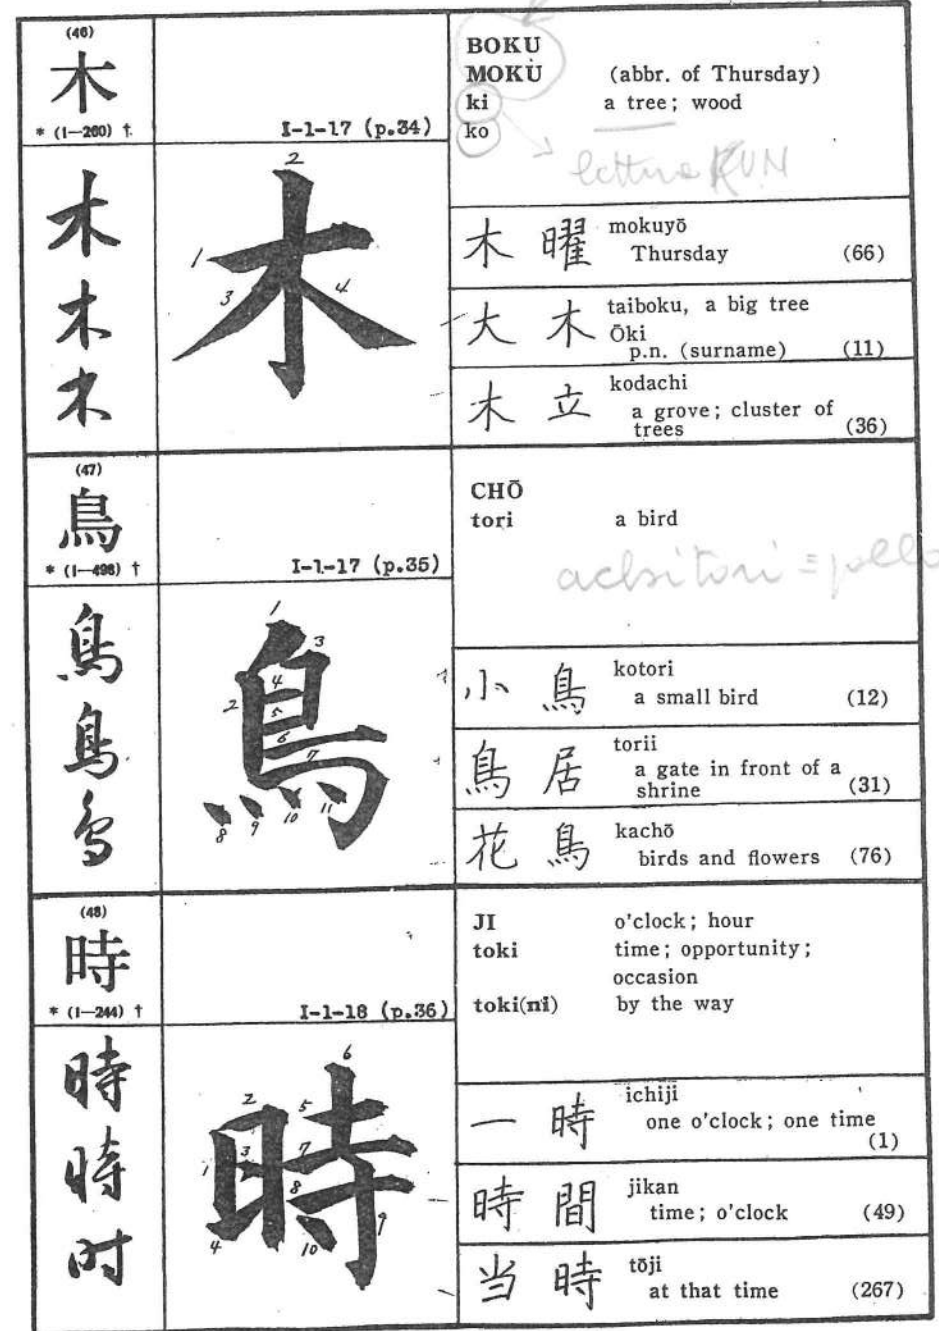 (46)
木
* (I—260) †
I-1-17 (p.34)
BOKU
MOKU (abbr. of Thursday)
ki a tree; wood
ko
lettura KUN
木
木
木
木
2
1
3
4
木曜 mokuyō
Thursday (66)
大木 taiboku, a big tree
Ōki
p.n. (surname) (11)
木立 kodachi
a grove; cluster of
trees (36)
(47)
鳥
* (I—498) †
I-1-17 (p.35)
CHŌ
tori a bird
鳥
鳥
鳥
鳥
1
2
3
4
5
6
7
8
9
10
11
小鳥 kotori
a small bird (12)
鳥居 torii
a gate in front of a
shrine (31)
花鳥 kachō
birds and flowers (76)
(48)
時
* (I—244) †
I-1-18 (p.36)
JI o'clock; hour
toki time; opportunity;
occasion
toki(ni) by the way
時
時
时
時
1
2
3
4
5
6
7
8
9
10
一時 ichiji
one o'clock; one time
(1)
時間 jikan
time; o'clock (49)
当時 tōji
at that time (267)